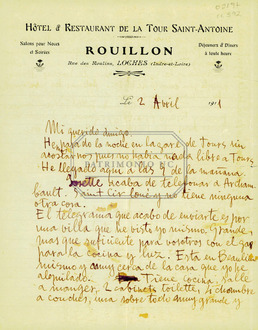 HÔTEL & RESTAURANT DE LA TOUR SAINT-ANTOINE
Salons pour Noces
et Soirées
Déjeuners & Dîners
à toute heure
ROUILLON
Rue des Moulins, LOCHES (Indre-et-Loire)
Le 2 Avril 19
Mi querido amigo.
He pasado la noche en la gare de Tours, sin
acostarnos pues no había nada libre a Tours.
He llegado aquí a las 9 de la mañana.
Josette acaba de telefonar a Archam-
bault. Saint Cir loué y no tiene ninguna
otra cosa.
El telegrama que acabo de enviarte es por
una villa que he visto yo mismo. Grande,
mas que suficiente para vosotros con el gas
para la cocina y luz. Está en Beaulieu
mismo y muy cerca de la casa que yo he
alquilado. Tiene cocina, salle
a manger, 2 cabinets toilette, 4 chambre
a coucher, una sobre todo muy grande y
PATRIMONIO